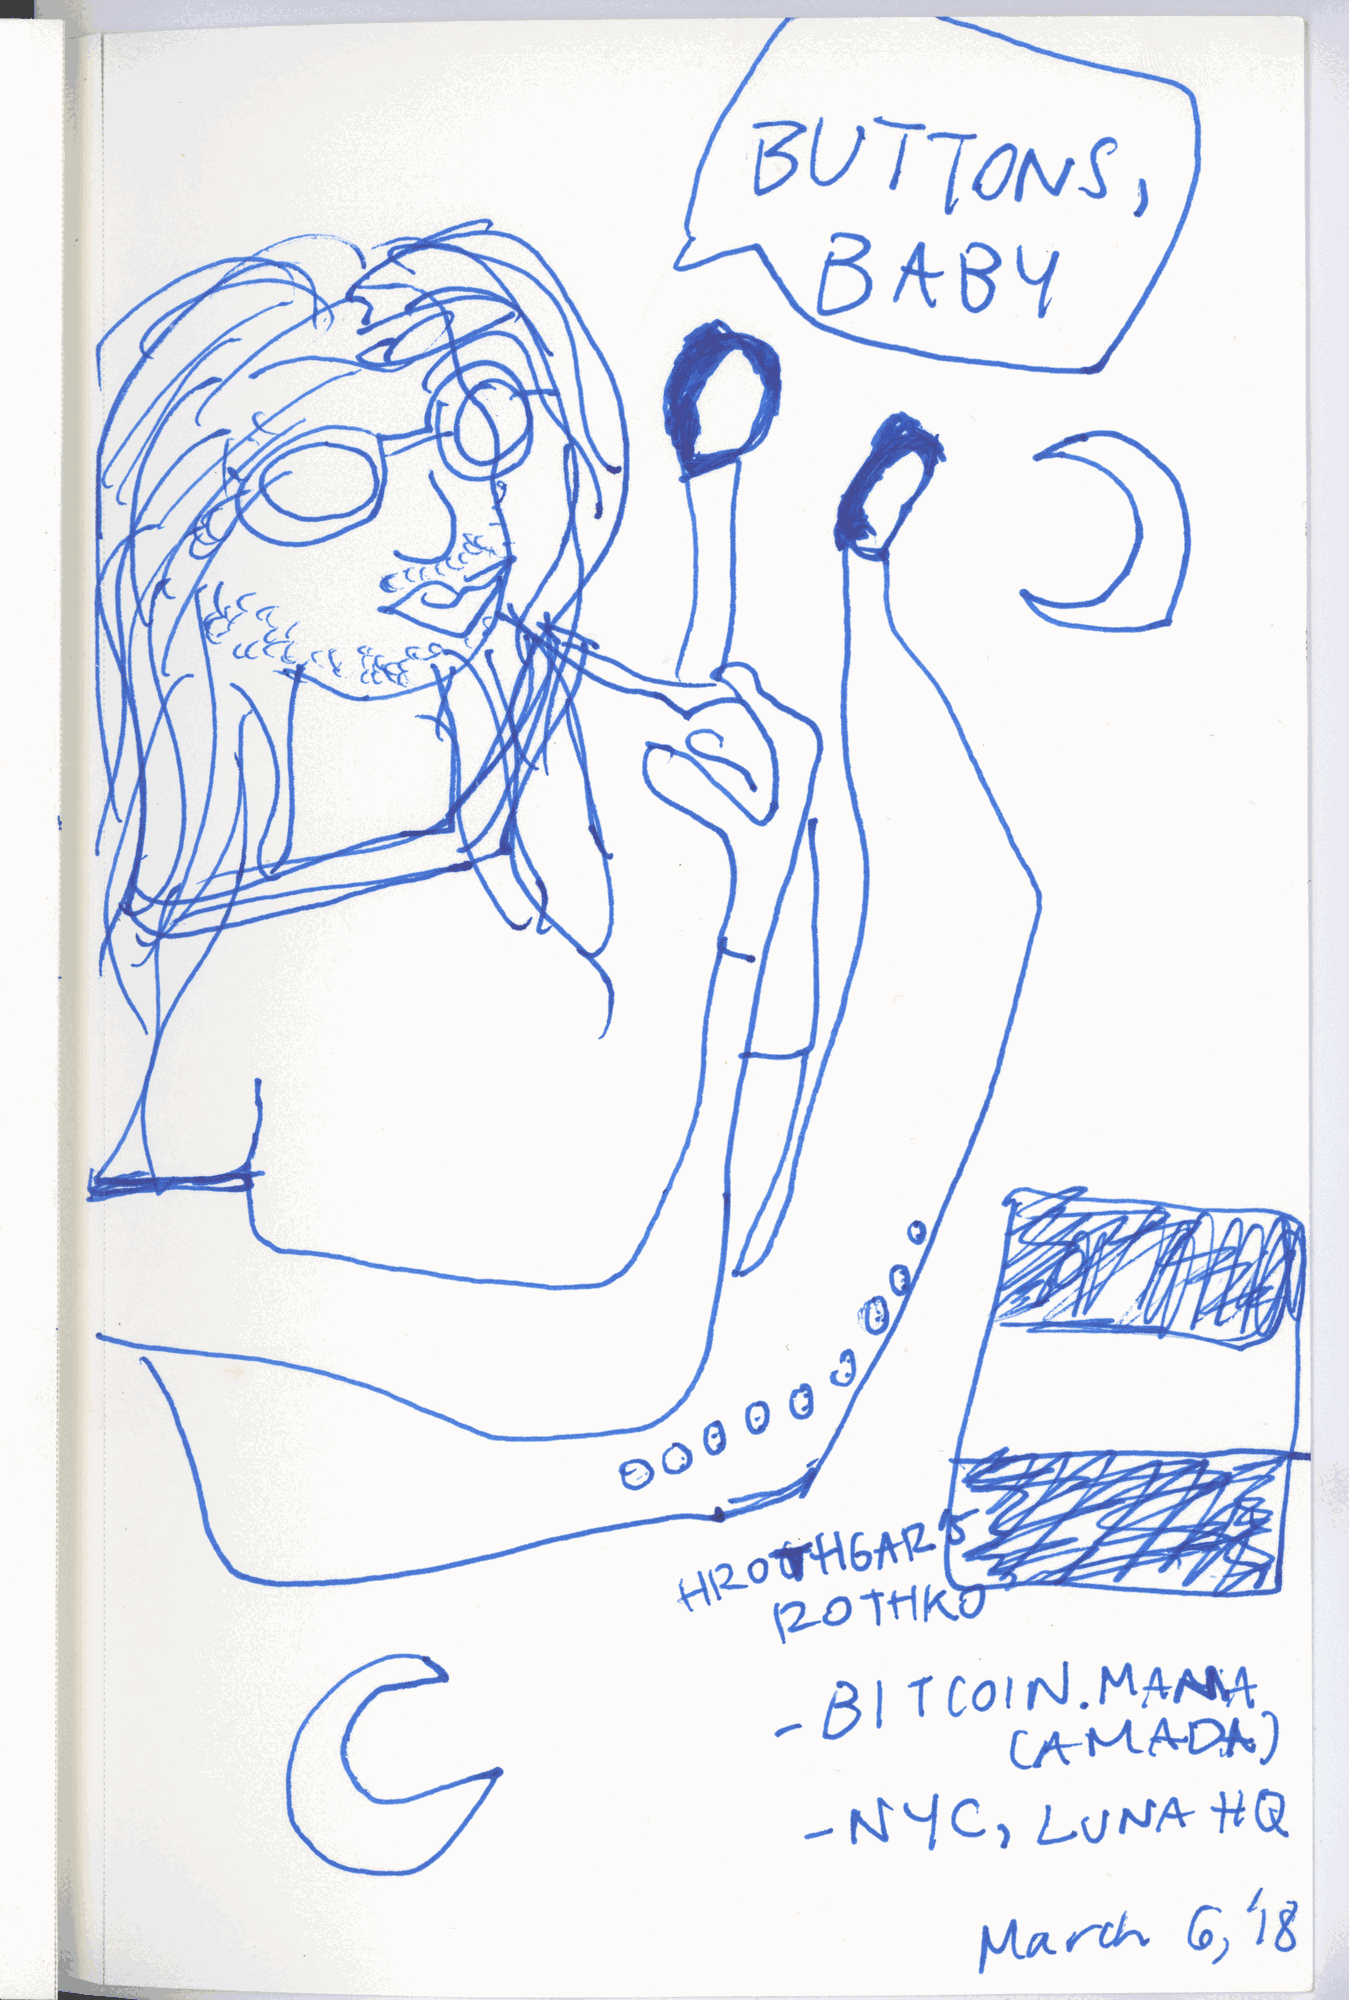 BUTTONS,
BABY
HROTHGAR'S
ROTHKO
- BITCOIN.MAMA
(AMADA)
- NYC, LUNA HQ
March 6, '18